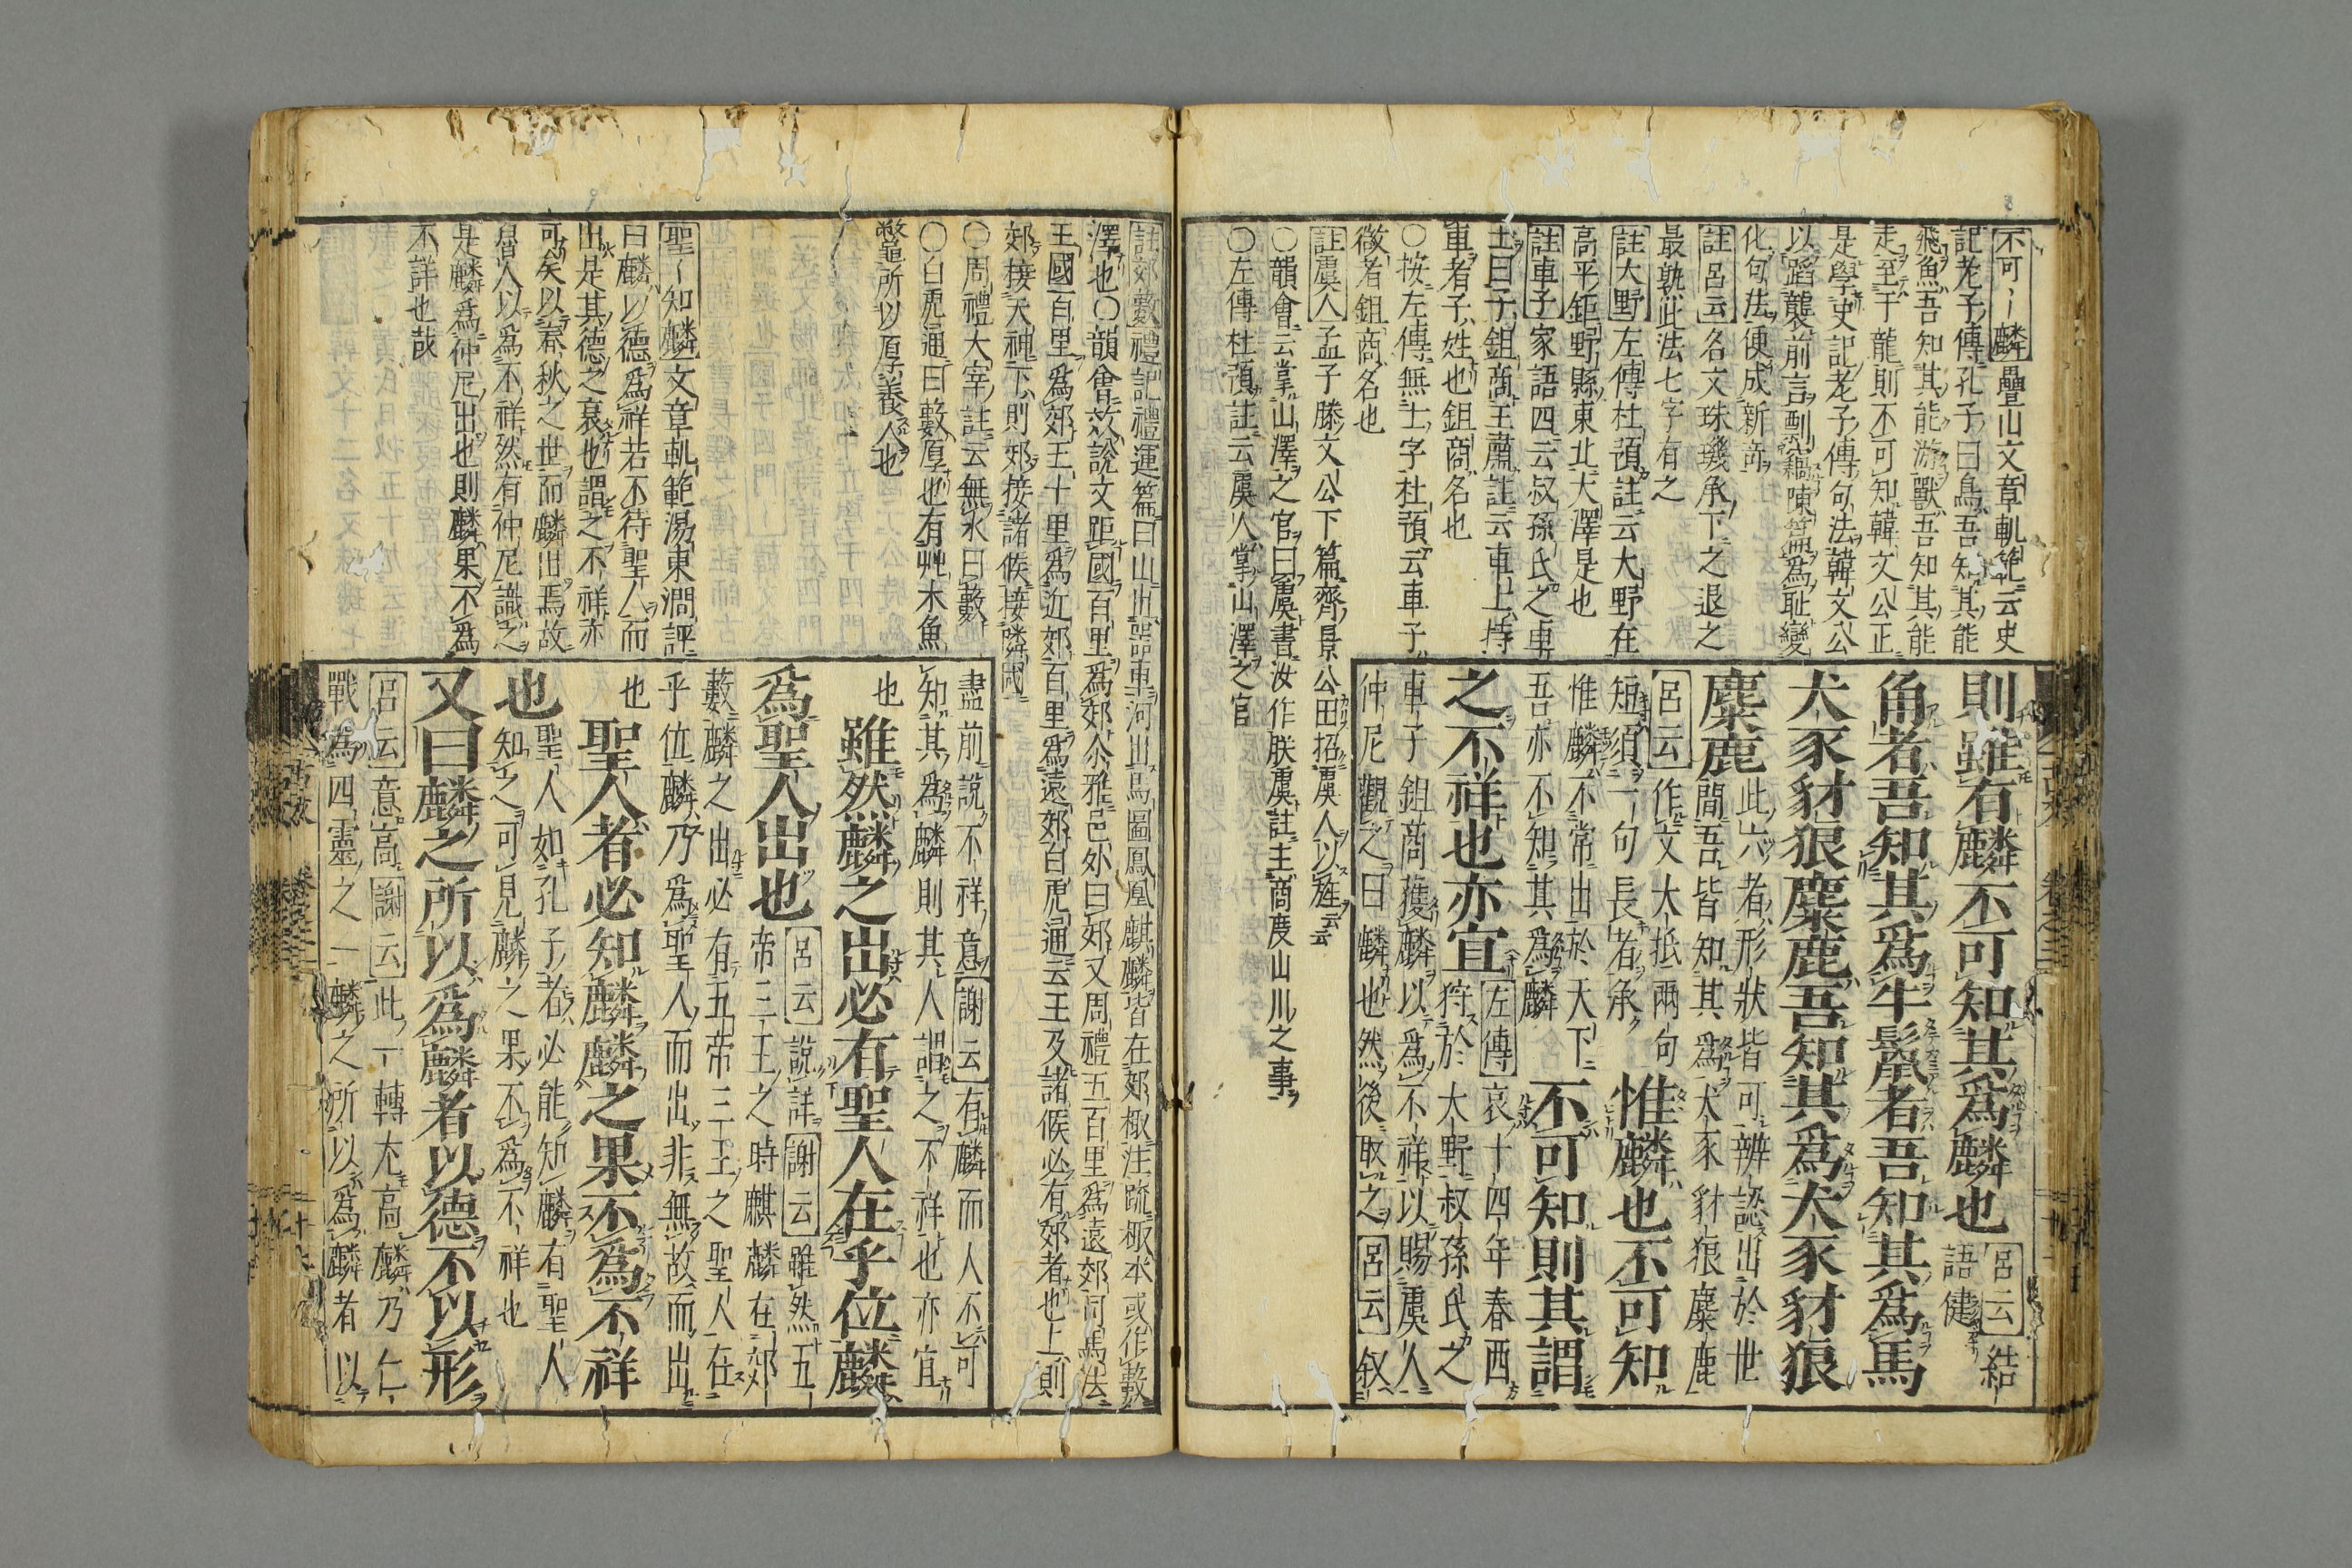 不可〻麟疊山文章軌範云史
記老子傳孔子曰鳥吾知其能
飛魚吾知其能游獸吾知其能
走至于龍則不可知韓文公正
是學史記老子傳句法韓文公
以蹈襲前言剽竊陳篇爲耻變
化句法便成新奇
註呂云名文珠璣承下之退之
最熟此法七字有之
註大野左傳杜預註云大野在
高平鉅野縣東北大澤是也
註車子家語四云叔孫氏之車
士曰子鉏商王肅註云車上持
車者子姓也鉏商名也
○按左傳無士字杜預云車子
微者鉏商名也
註虞人孟子滕文公下篇齊景公田招虞人以旌云云
○韻會云掌山澤之官曰虞書汝作朕虞註主商度山川之事
○左傳杜預註云虞人掌山澤之官
則雖有麟不可知其爲麟也呂云結
語健
角者吾知其爲牛鬣者吾知其爲馬
犬豕豺狼麋鹿吾知其爲犬豕豺狼
麋鹿此六者形狀皆可辨認出於世
間吾皆知其爲犬豕豺狼麋鹿
呂云作文大抵兩句
短須一句長者承惟麟也不可知
惟麟不常出於天下
吾亦不知其爲麟不可知則其謂
之不祥也亦宜左傳哀十四年春西
狩於大野叔孫氏之
車子鉏商獲麟以爲不祥以賜虞人
仲尼觀之曰麟也然後取之呂云叙
註郊藪禮記禮運篇曰山出器車河出馬圖鳳凰麒麟皆在郊棷注疏板本或作藪
澤也○韻會說文距國百里爲郊尒雅邑外曰郊又周禮五百里爲遠郊司馬法
王國百里爲郊王十里爲近郊百里爲遠郊白虎通云王及諸侯必有郊者也上則
郊接天神下則郊接諸侯接隣國
○周禮大宰註云無水曰藪
○白虎通曰藪厚也有艸木魚
鱉所以厚養人也
聖〻知麟文章軌範湯東澗評
曰麟以德爲祥若不待聖人而
出是其德之衰也謂之不祥亦
可矣以春秋之世而麟出焉故
魯人以爲不祥然有仲尼識之
是麟爲仲尼出也則麟果不爲
不詳也哉
盡前說不祥意謝云有麟而人不可
知其爲麟則其人謂之不祥也亦宜
也雖然麟之出必有聖人在乎位麟
爲聖人出也呂云說詳謝云雖然五
帝三王之時麒麟在郊
藪麟之出必有五帝三王之聖人在
乎位麟乃爲聖人而出非無故而出
也聖人者必知麟麟之果不爲不祥
也聖人如孔子者必能知麟有聖人
知之可見麟之果不爲不祥也
又曰麟之所以爲麟者以德不以形
呂云意高謝云此一轉尤高麟乃仁
獸爲四靈之一麟之所以爲麟者以